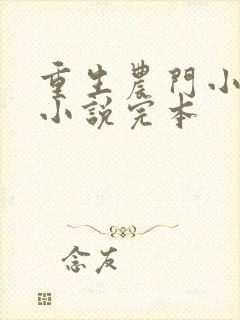 重生農門小
小說完本
念友